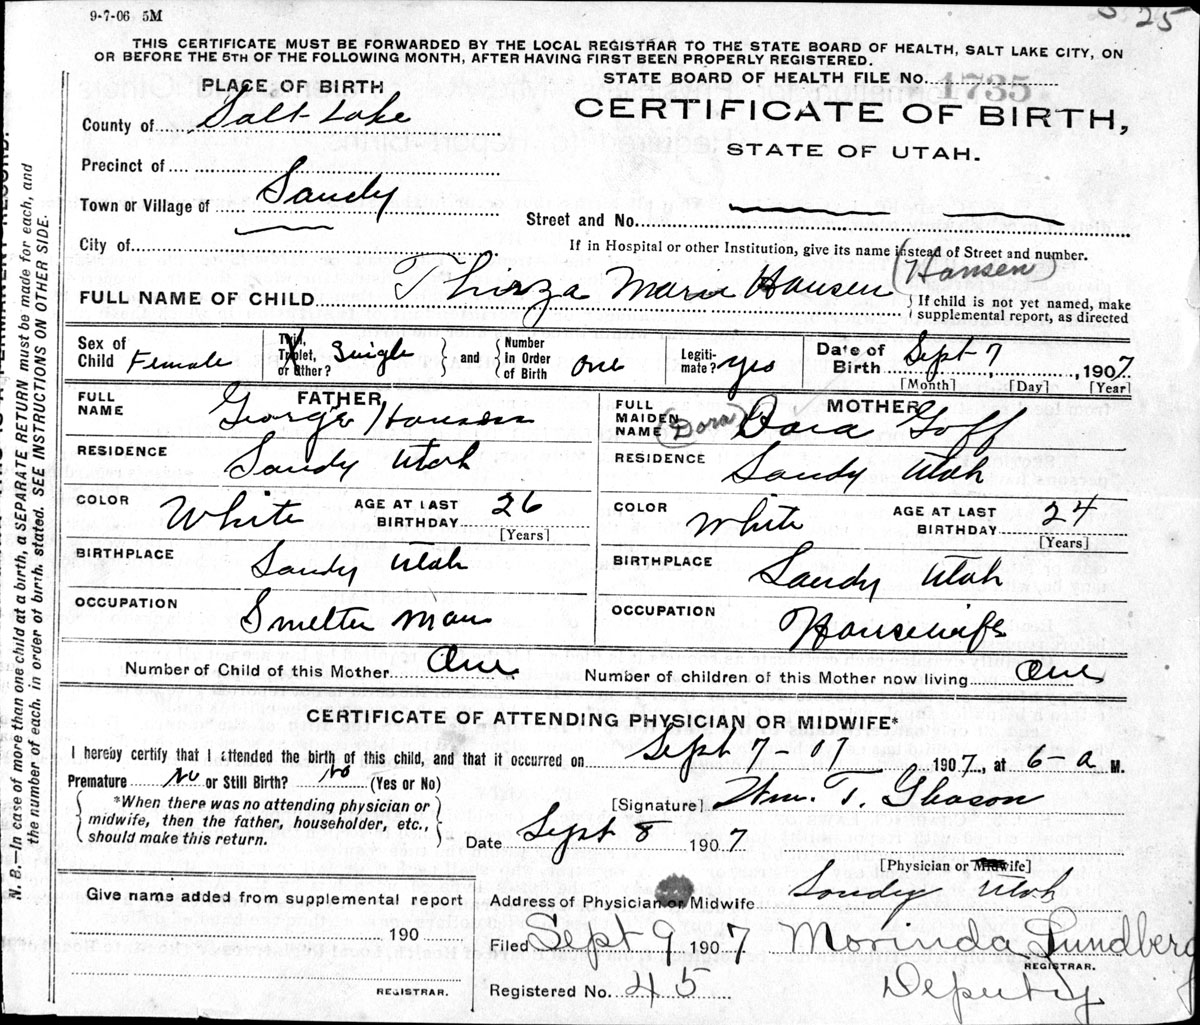 9-7-06 5M
25
THIS CERTIFICATE MUST BE FORWARDED BY THE LOCAL REGISTRAR TO THE STATE BOARD OF HEALTH, SALT LAKE CITY, ON
OR BEFORE THE 5TH OF THE FOLLOWING MONTH, AFTER HAVING FIRST BEEN PROPERLY REGISTERED.
STATE BOARD OF HEALTH FILE No. 1735
PLACE OF BIRTH
CERTIFICATE OF BIRTH,
STATE OF UTAH.
County of Salt Lake
Precinct of
Town or Village of Sandy
Street and No.
City of
If in Hospital or other Institution, give its name instead of Street and number.
(Hansen)
FULL NAME OF CHILD Thirza Marie Hansen
If child is not yet named, make
supplemental report, as directed
Sex of Child Female
Twin, Triplet, or other? Single
and
Number in Order of Birth One
Legitimate? yes
Date of Birth Sept 7, 1907
[Month] [Day] [Year]
FATHER
FULL NAME George Hansen
RESIDENCE Sandy Utah
COLOR White
AGE AT LAST BIRTHDAY 26
[Years]
BIRTHPLACE Sandy Utah
OCCUPATION Smelter man
MOTHER
FULL MAIDEN NAME (Dora) Dora Goff
RESIDENCE Sandy Utah
COLOR White
AGE AT LAST BIRTHDAY 24
[Years]
BIRTHPLACE Sandy Utah
OCCUPATION Housewife
Number of Child of this Mother One
Number of children of this Mother now living One
CERTIFICATE OF ATTENDING PHYSICIAN OR MIDWIFE*
I hereby certify that I attended the birth of this child, and that it occurred on Sept 7-07 1907, at 6-a M.
Premature No or Still Birth? No (Yes or No)
*When there was no attending physician or
midwife, then the father, householder, etc.,
should make this return.
[Signature] Wm. T. Gleason
Date Sept 8 1907
[Physician or Midwife]
Address of Physician or Midwife Sandy Utah
Give name added from supplemental report
190
REGISTRAR.
Filed Sept 9 1907 Morinda Lundberg
REGISTRAR.
Registered No. 45 Deputy
N. B.—In case of more than one child at a birth, a SEPARATE RETURN must be made for each, and
the number of each, in order of birth, stated. SEE INSTRUCTIONS ON OTHER SIDE.